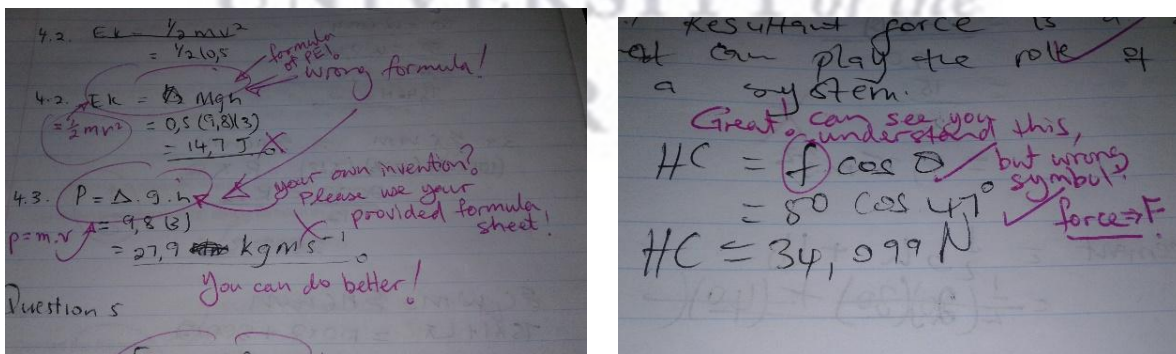 UNIVERSITY of the
4.2. Ek = ½ mv²
= ½ (0,5
formula
of PE!
wrong formula!
4.2. Ek = Mgh
= ½ mv²
= 0,5 (9,8)(3)
= 14,7 J
4.3. P = Δ.g.h
your own invention?
Please use your
provided formula
sheet!
p = m.v
= 9,8 (3)
= 27,9 kgms⁻¹
You can do better!
Question 5
Resultant force is a
can play the role of
a system.
Great! can see you
understand this,
but wrong
symbol!
force ⇒ F
HC = f cos θ
= 50 cos 47°
HC = 34,099 N